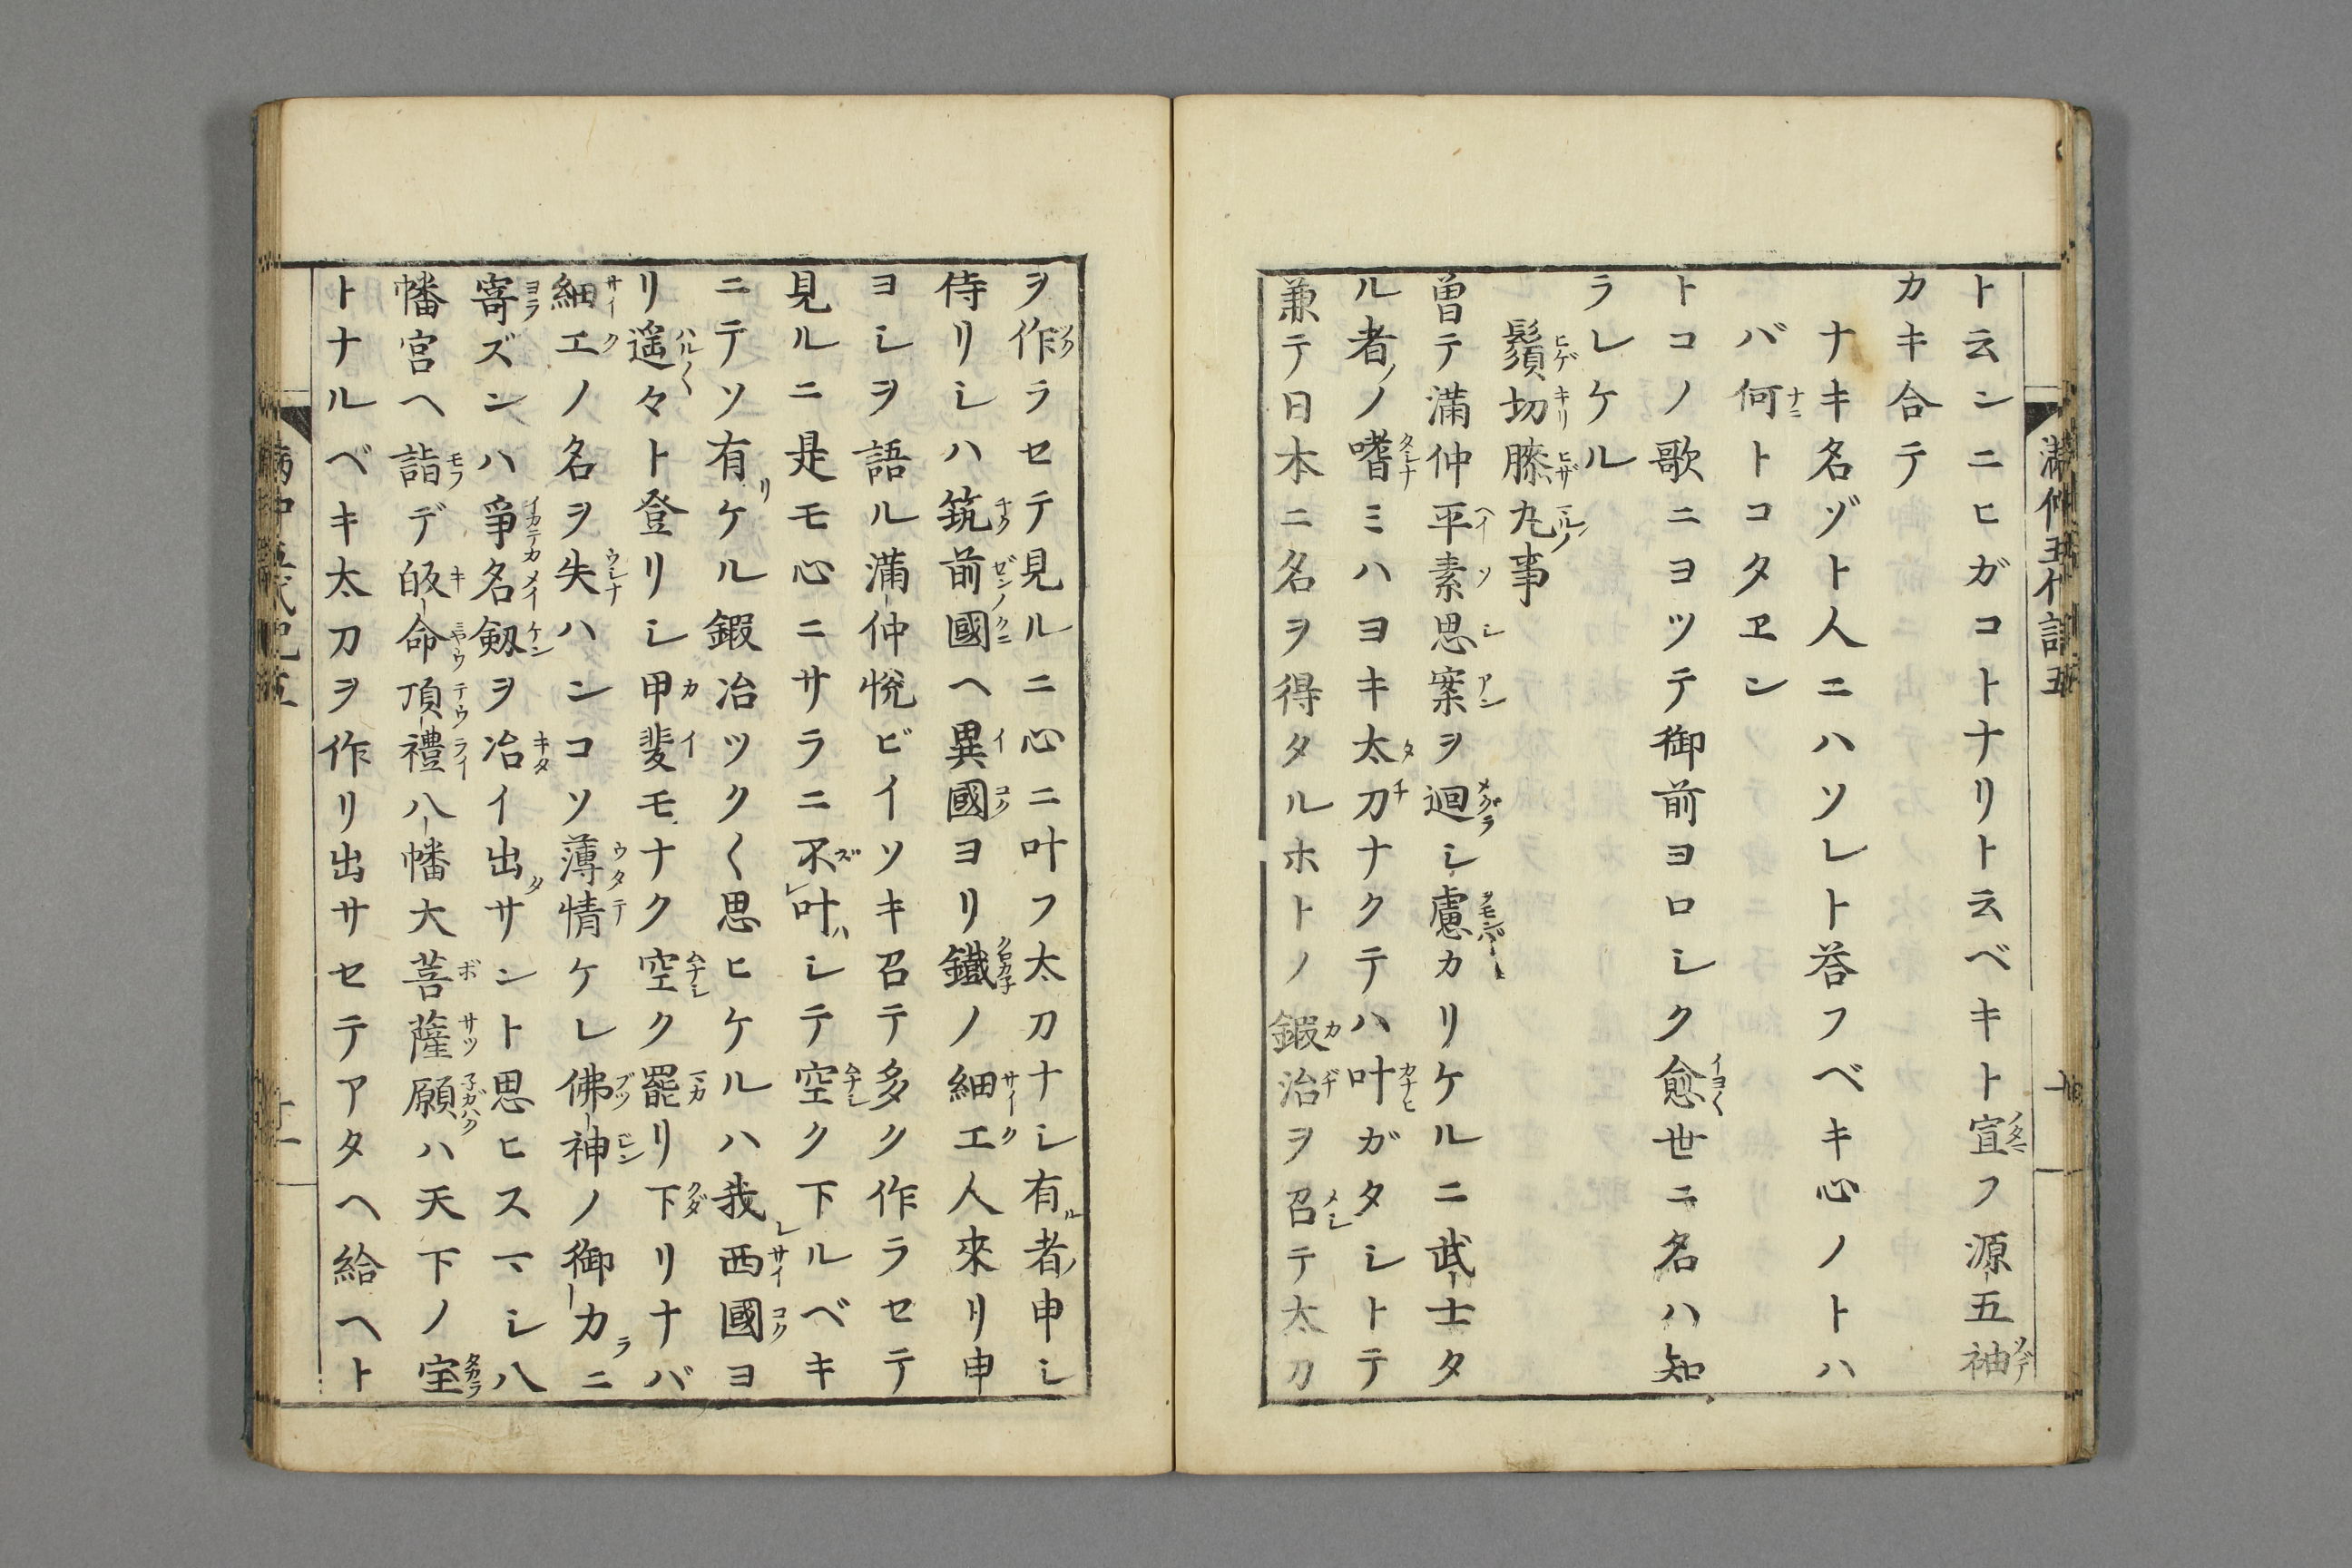 ト云ンニヒガコトナリト云ベキト宣フ源五袖
カキ合テ
ナキ名ゾト人ニハソレト荅フベキ心ノトハ
バ何トコタヱン
トコノ歌ニヨツテ御前ヨロシク愈世ニ名ハ知
ラレケル
鬚切膝丸事
曽テ満仲平素思案ヲ迴シ慮カリケルニ武士タ
ル者ノ嗜ミハヨキ太刀ナクテハ叶ガタシトテ
兼テ日本ニ名ヲ得タルホトノ鍜治ヲ召テ太刀
ヲ作ラセテ見ルニ心ニ叶フ太刀ナシ有者申シ
侍リシハ筑前國ヘ異國ヨリ鐵ノ細工人來リ申
ヨシヲ語ル満仲悦ビイソキ召テ多ク作ラセテ
見ルニ是モ心ニサラニ不叶シテ空ク下ルベキ
ニテソ有ケル鍜冶ツク〱思ヒケルハ我西國ヨ
リ遥々ト登リシ甲斐モナク空ク罷リ下リナバ
細工ノ名ヲ失ハンコソ薄情ケレ佛神ノ御力ニ
寄ズンハ爭名剱ヲ冶イ出サント思ヒスマシ八
幡宮ヘ詣デ皈命頂禮八幡大菩薩願ハ天下ノ宝
トナルベキ太刀ヲ作リ出サセテアタヘ給ヘト